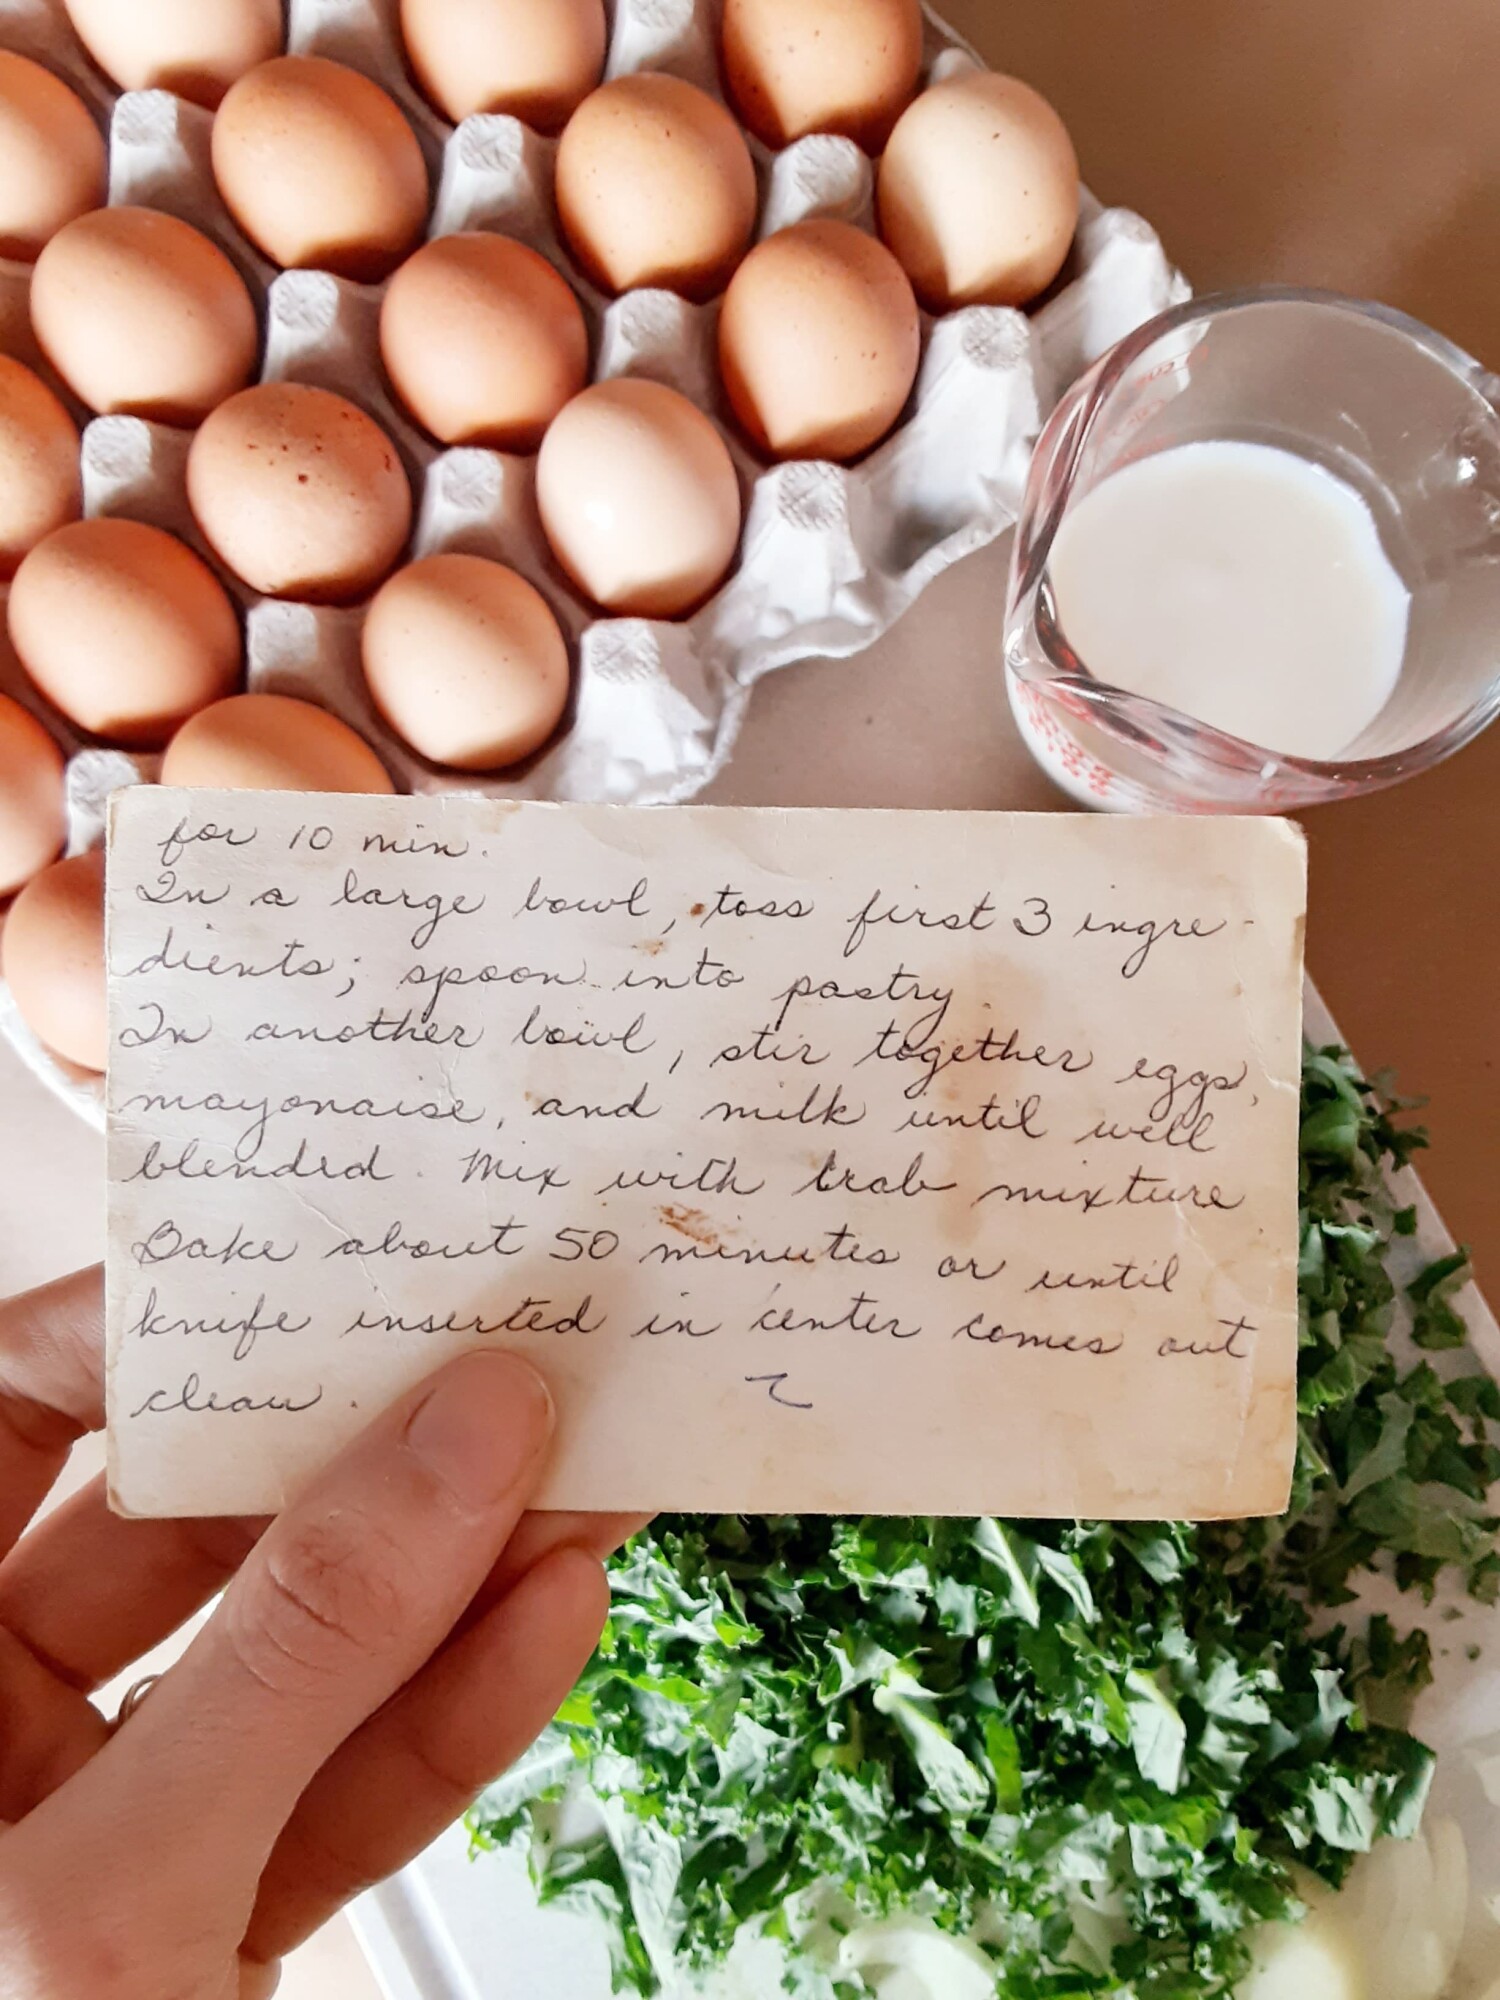 for 10 min.
In a large bowl, toss first 3 ingre-
dients; spoon into pastry.
In another bowl, stir together eggs,
mayonaise, and milk until well
blended. Mix with crab mixture
Bake about 50 minutes or until
knife inserted in center comes out
clean.